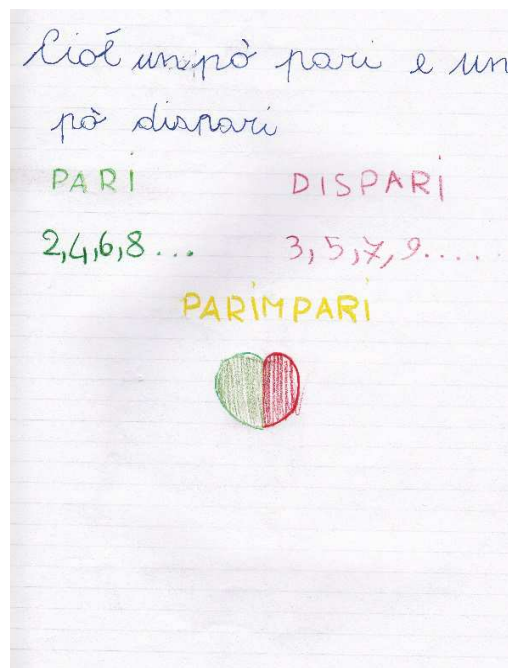 Cioè un pò pari e un
pò dispari
PARI DISPARI
2,4,6,8... 3,5,7,9.....
PARIMPARI